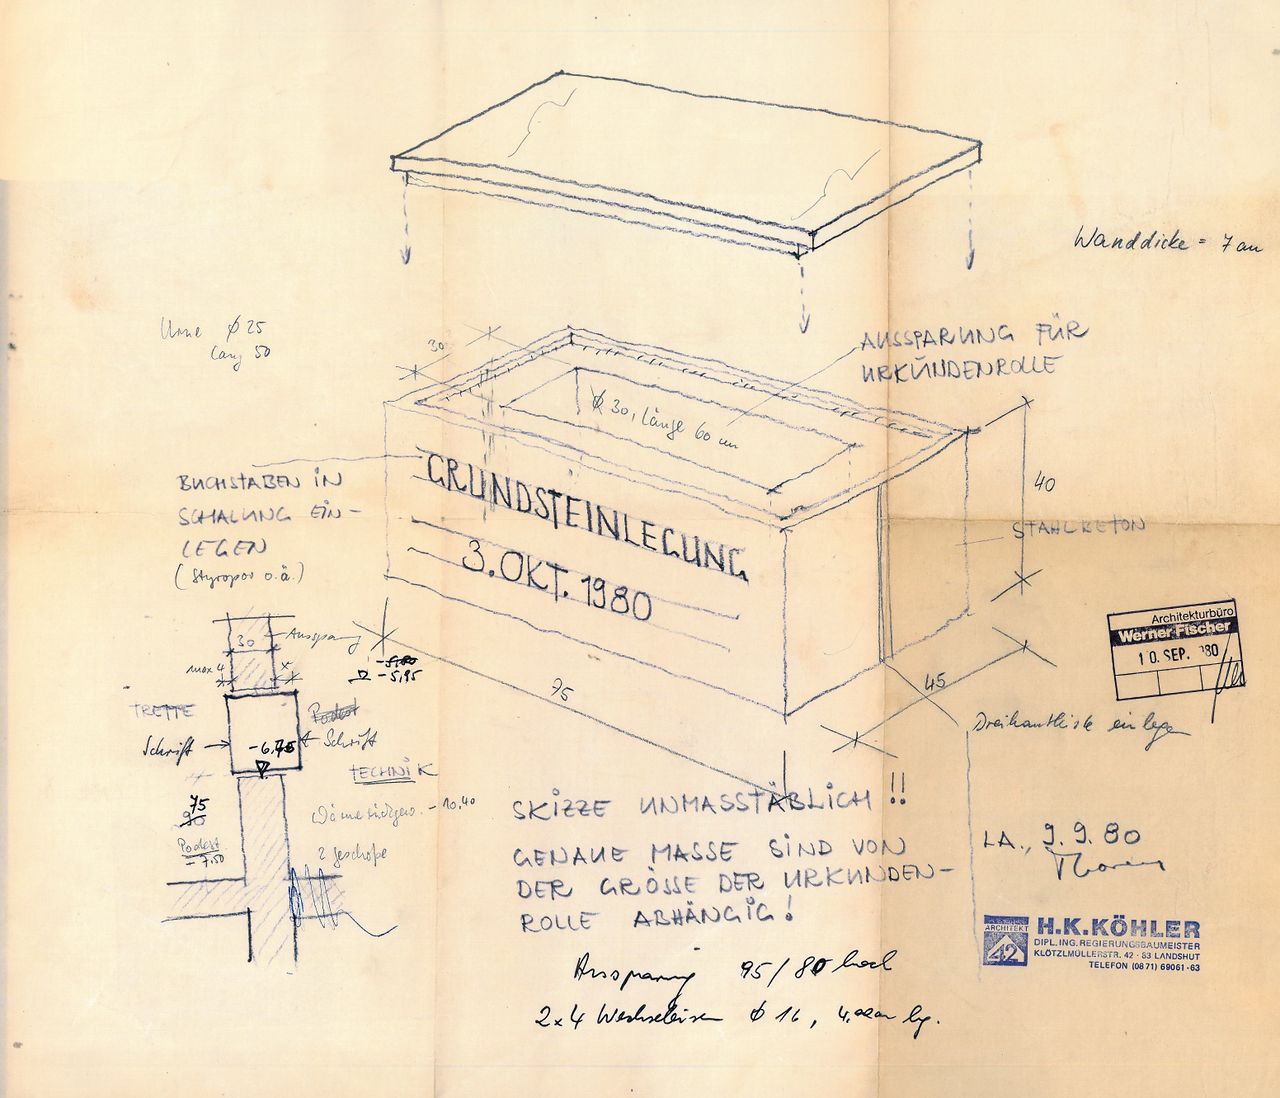 Wanddicke = 7 cm
Urne ϕ 25
lang 50
30
AUSSPARUNG FÜR
URKUNDENROLLE
ϕ 30, Länge 60 cm
BUCHSTABEN IN
SCHALUNG EIN-
LEGEN
(Styropor o.ä.)
GRUNDSTEINLEGUNG
3. OKT. 1980
40
STAHLBETON
Architekturbüro
Werner Fischer
10. SEP. 80
30
Aussparung
max 4
-5,80
-5,95
75
45
TREPPE
Podest
Schrift
-6.75
Schrift
TECHNIK
Dreikantleiste einlegen
75
90
Podest
-7.50
-10.40
2 geschoße
SKIZZE UNMASSTÄBLICH!!
GENAUE MASSE SIND VON
DER GRÖSSE DER URKUNDEN-
ROLLE ABHÄNGIG!
LA., 9.9.80
ARCHITEKT
42
H.K.KÖHLER
DIPL.ING.REGIERUNGSBAUMEISTER
KLÖTZLMÜLLERSTR. 42 · 83 LANDSHUT
TELEFON (0871) 69061·63
Aussparung 95/80 hoch
2x4 Wechseleisen ϕ 16, lg.